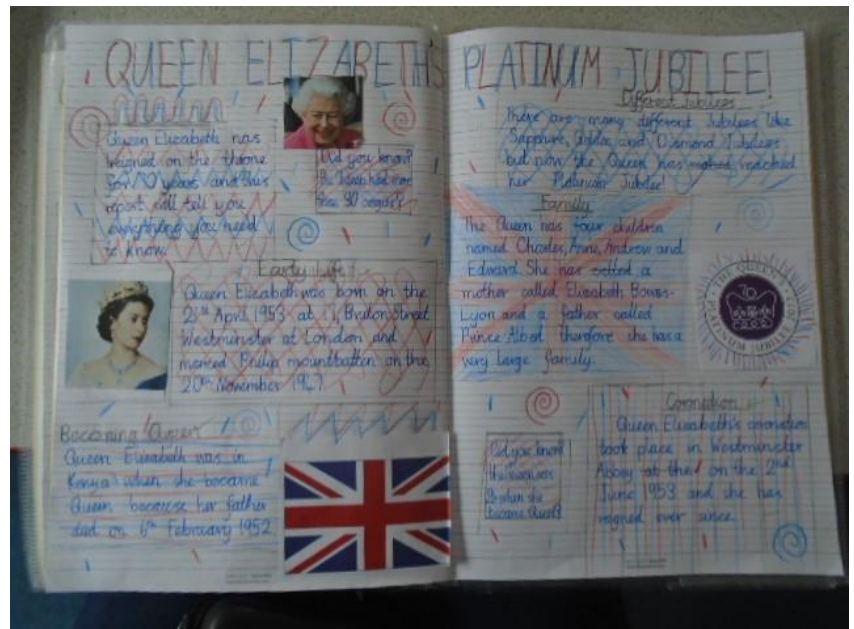 QUEEN ELIZABETH'S PLATINUM JUBILEE!
Queen Elizabeth has
reigned on the throne
for 70 years and this
report will tell you
everything you need
to know.
Did you know?
the Queen had over
30 corgis
Early Life
Queen Elizabeth was born on the
21st April 1953 at 17, Bruton Street
Westminster at London and
married Philip mountbatten on the
20th November 1947.
Becoming Queen
Queen Elizabeth was in
Kenya when she became
Queen because her father
died on 6th February 1952
Different Jubilees
There are many different Jubilees like
Sapphire, Golden and Diamond Jubilees
but now the Queen has reached
her Platinum Jubilee!
Family
The Queen has four children
named Charles, Anne, Andrew and
Edward. She has called a
mother called Elizabeth Bowes-
Lyon and a father called
Prince Albert therefore she has a
very large family.
THE QUEEN'S
70
PLATINUM JUBILEE
Did you know?
the Queen was
when she
became Queen?
Coronation
Queen Elizabeth's coronation
took place in Westminster
Abbey at the on the 2nd
June 1953 and she has
reigned ever since.